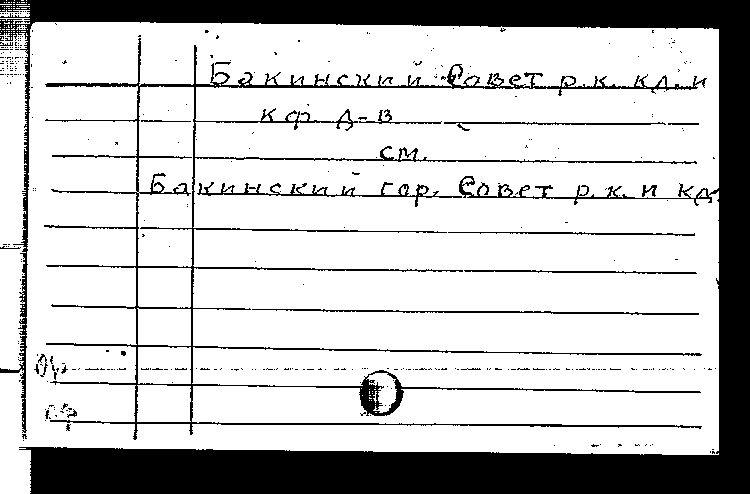 Бакинский Совет р.к. кд. и
кф д-в
см.
Бакинский гор. Совет р.к. и кд.